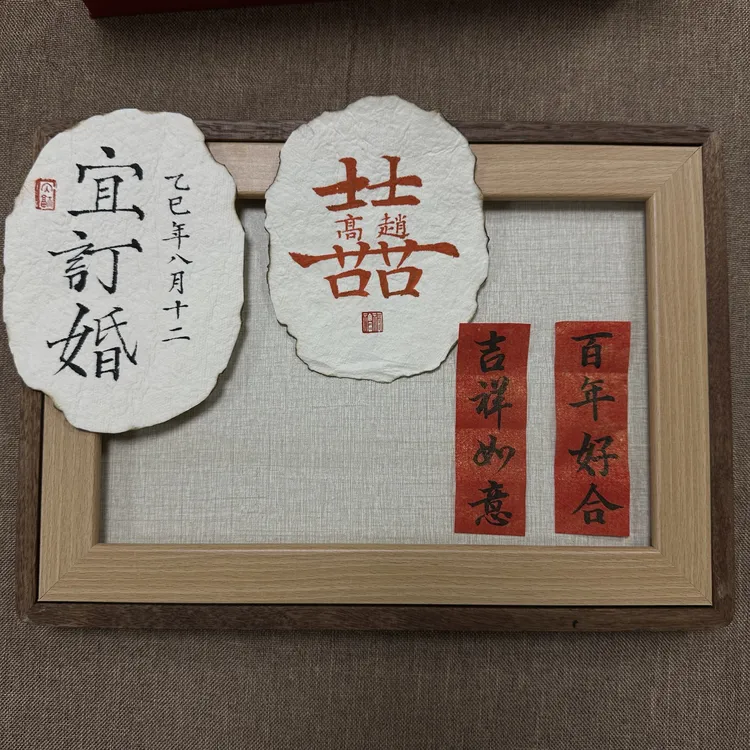 乙巳年八月十二
宜訂婚
囍
高 趙
百年好合
吉祥如意